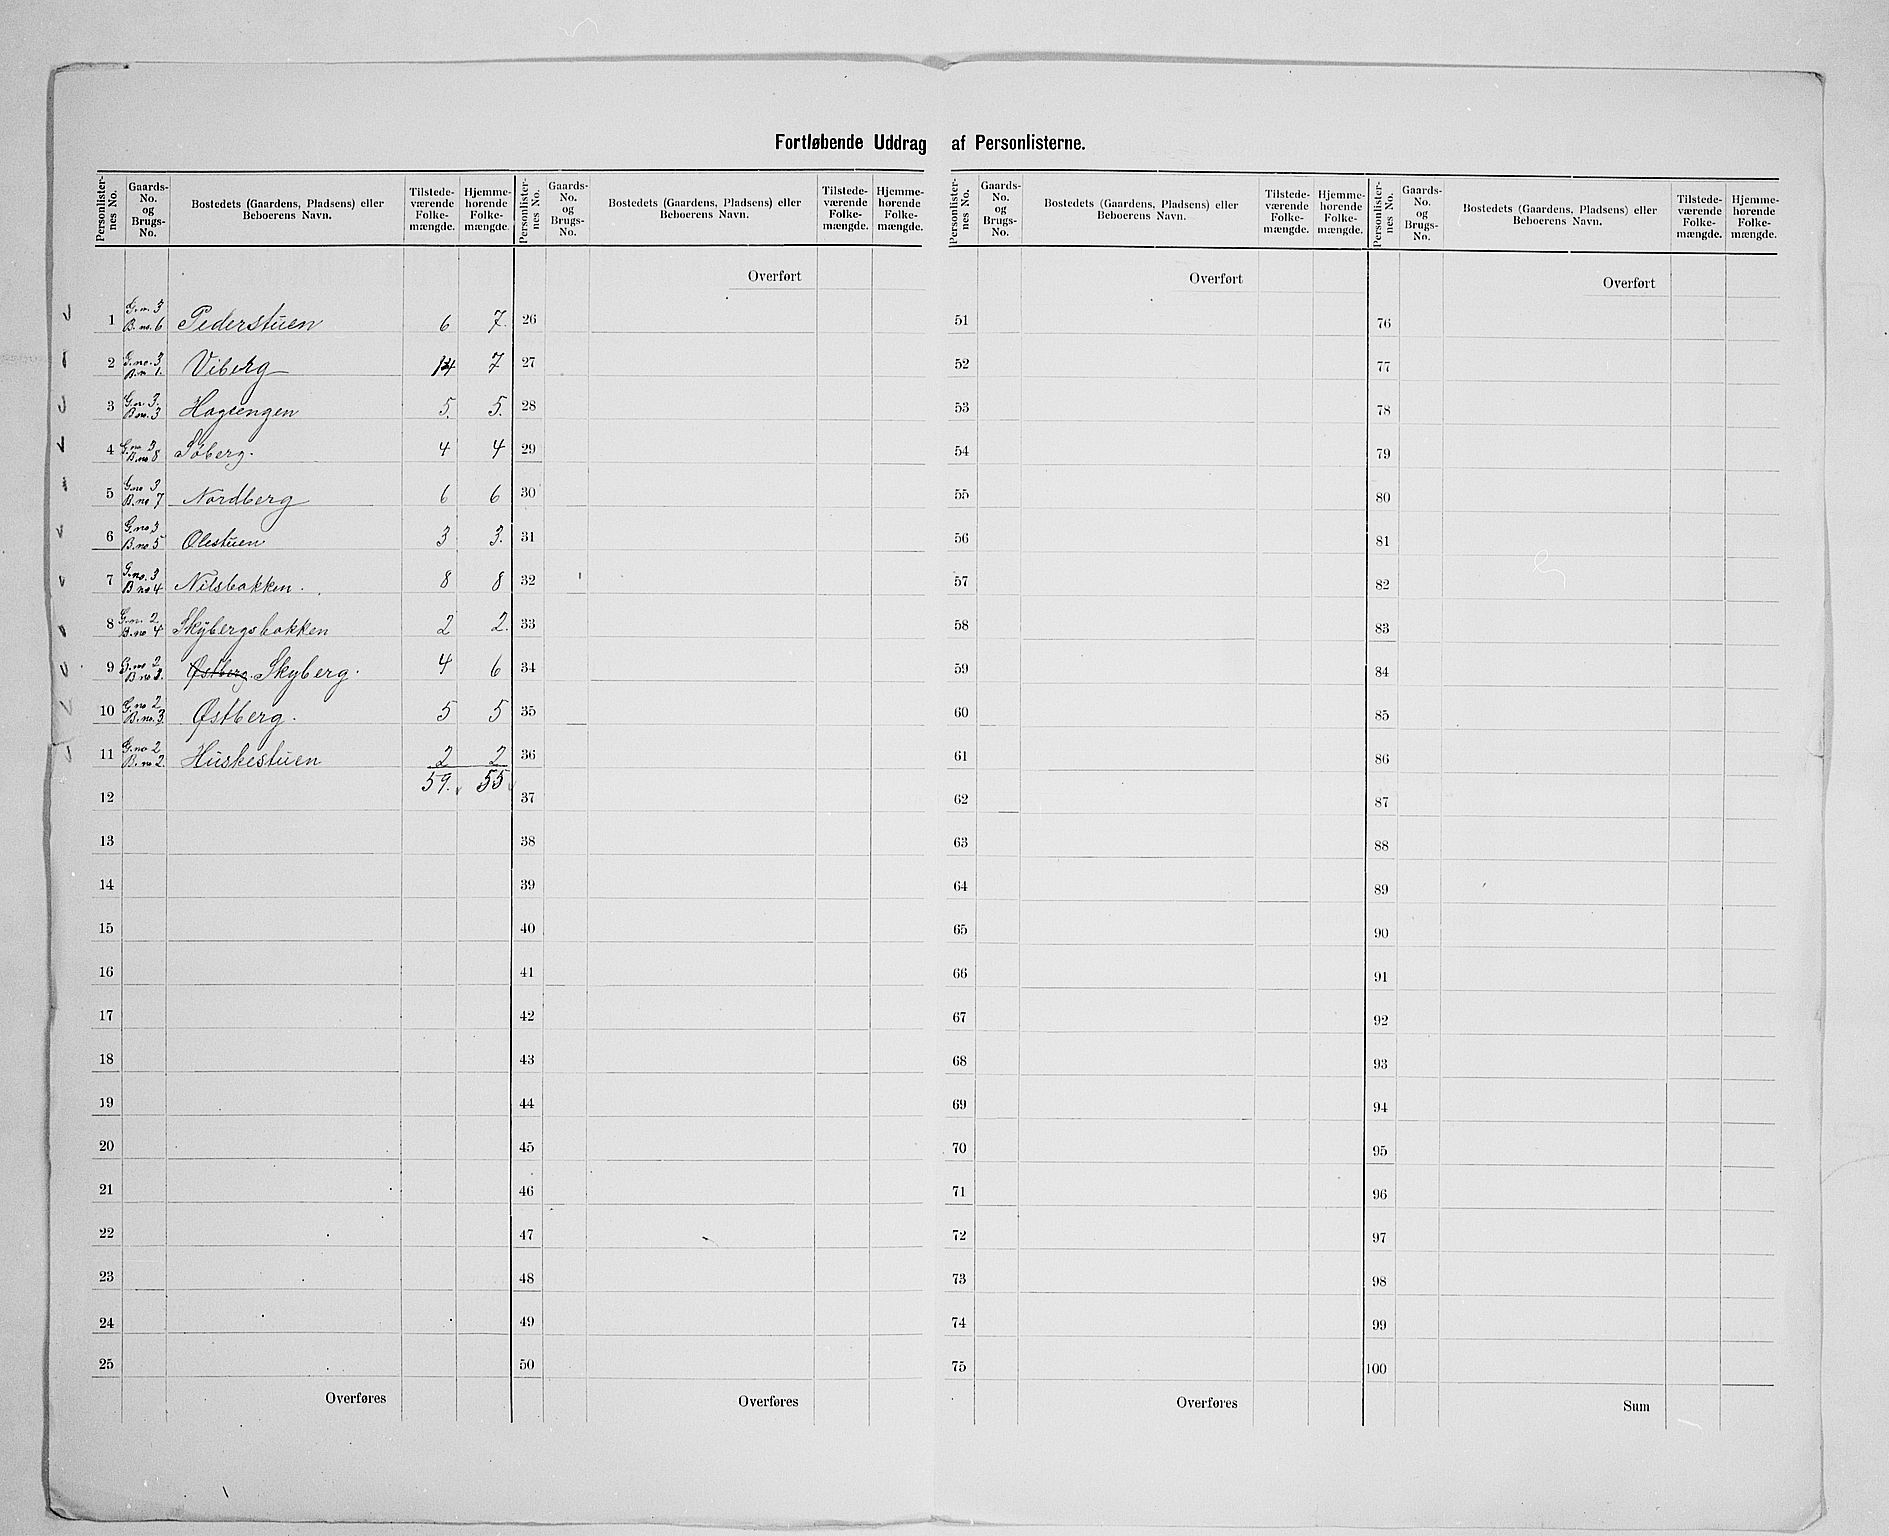 Fortløbende Uddrag af Personlisterne.
Personlister-nes No. | Gaards-No. og Brugs-No. | Bostedets (Gaardens, Pladsens) eller Beboerens Navn. | Tilstede-værende Folke-mængde. | Hjemme-hørende Folke-mængde.
1 | G.n. 3 B. no. 6 | Pederstuen | 6 | 7.
2 | G.no. 3 B.n 1. | Viberg | 14 | 7
3 | G.n. 3. B no. 3 | Hagsengen | 5. | 5.
4 | G.no 3 B.no 8 | Söberg. | 4 | 4
5 | G.no 3 B. no 7 | Nordberg | 6 | 6
6 | G.no 3 B.no 5 | Olestuen | 3 | 3.
7 | G.no. 3 B no 4 | Nilsbakken. | 8 | 8
8 | G.n. 2. B. no 4 | Skybergsbakken | 2 | 2.
9 | G.no 2 B no 1. | Østberg. Skyberg. | 4 | 6
10 | G.no 2 B. no. 3. | Østberg. | 5 | 5
11 | G.no 2 B. no 2. | Huskestuen | 2 | 2
59. | 55
12
13
14
15
16
17
18
19
20
21
22
23
24
25
Overføres
Personlister-nes No. | Gaards-No. og Brugs-No. | Bostedets (Gaardens, Pladsens) eller Beboerens Navn. | Tilstede-værende Folke-mængde. | Hjemme-hørende Folke-mængde.
Overført
26
27
28
29
30
31
32
33
34
35
36
37
38
39
40
41
42
43
44
45
46
47
48
49
50
Overføres
Personlister-nes No. | Gaards-No. og Brugs-No. | Bostedets (Gaardens, Pladsens) eller Beboerens Navn. | Tilstede-værende Folke-mængde. | Hjemme-hørende Folke-mængde.
Overført
51
52
53
54
55
56
57
58
59
60
61
62
63
64
65
66
67
68
69
70
71
72
73
74
75
Overføres
Personlister-nes No. | Gaards-No. og Brugs-No. | Bostedets (Gaardens, Pladsens) eller Beboerens Navn. | Tilstede-værende Folke-mængde. | Hjemme-hørende Folke-mængde.
Overført
76
77
78
79
80
81
82
83
84
85
86
87
88
89
90
91
92
93
94
95
96
97
98
99
100
Sum